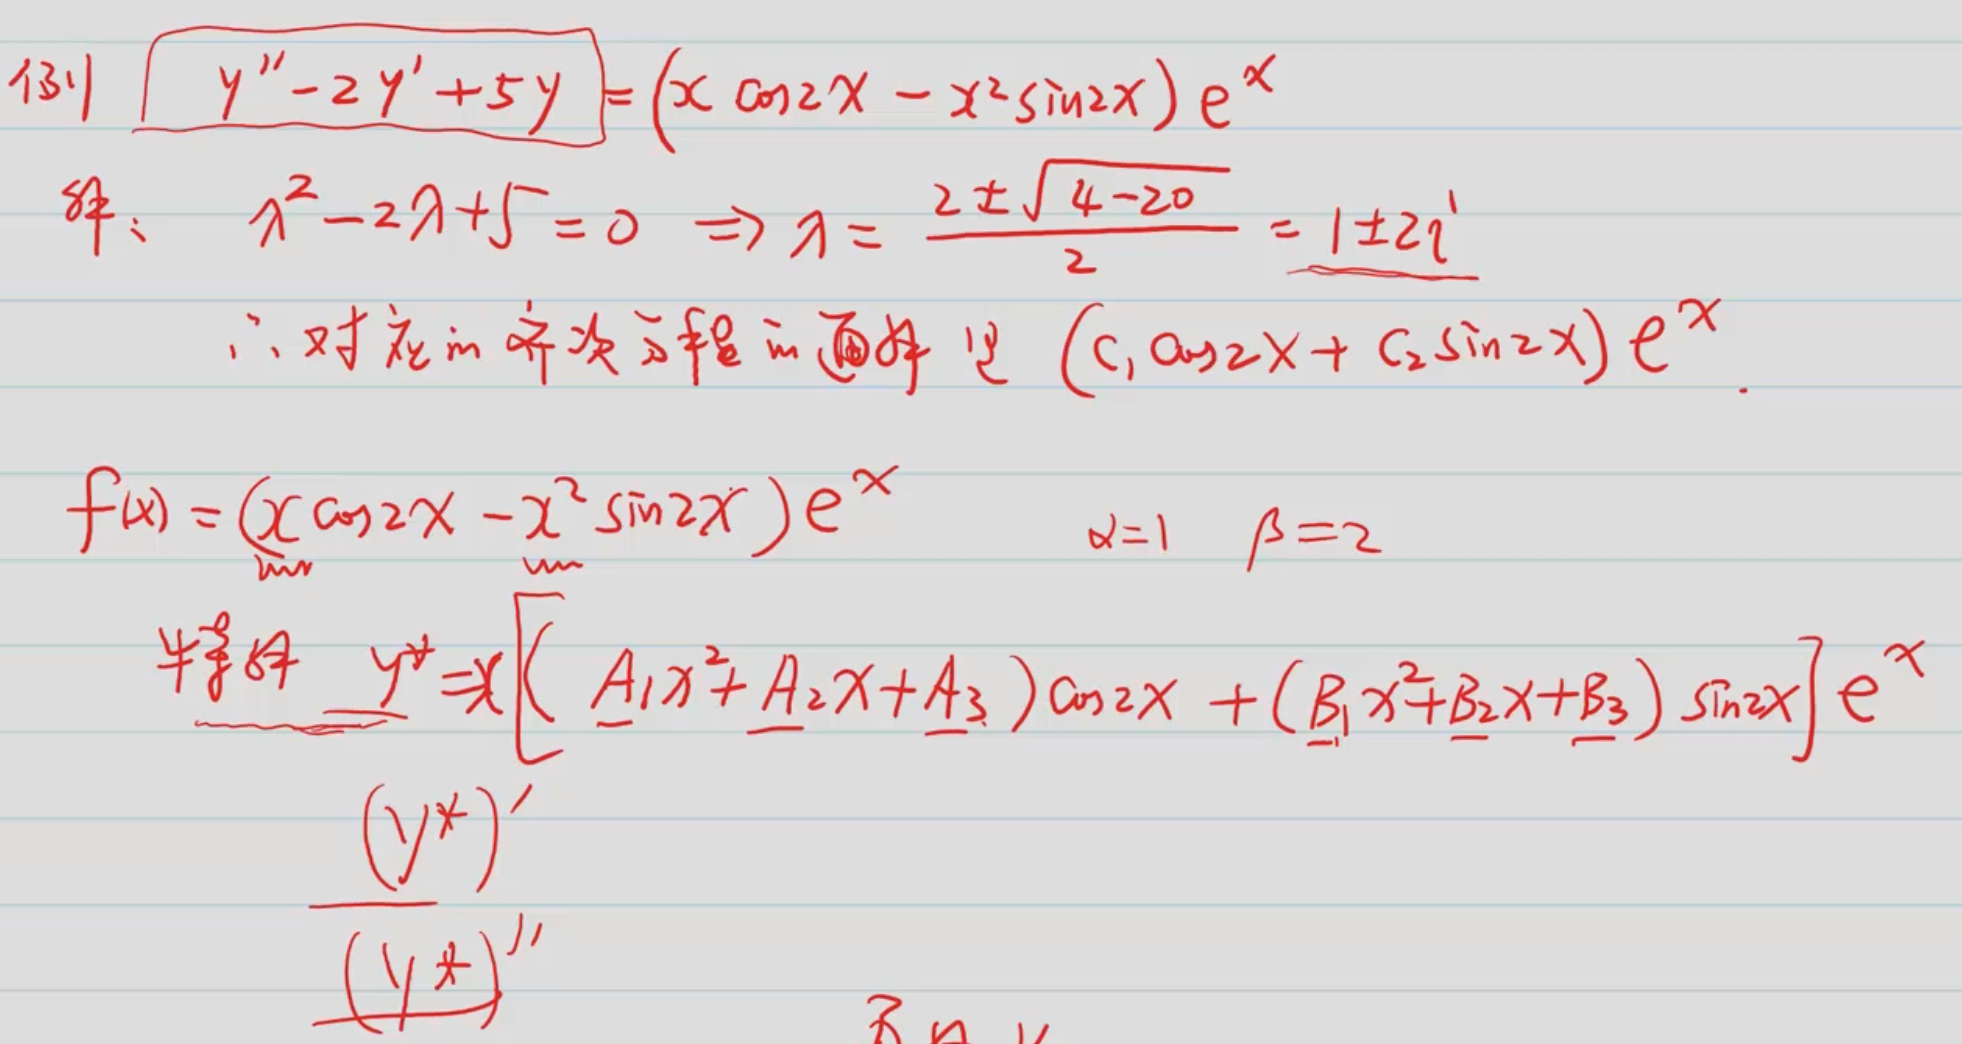 例 y''-2y'+5y=(x cos2x - x²sin2x)eˣ
解: λ²-2λ+5=0 ⇒ λ= (2±√(4-20))/2 = 1±2i
∴ 对应的齐次方程的通解是 (C₁cos2x+C₂sin2x)eˣ.
f(x)=(xcos2x-x²sin2x)eˣ α=1 β=2
特解 y*=x[(A₁x²+A₂x+A₃)cos2x+(B₁x²+B₂x+B₃)sin2x]eˣ
(y*)'
(y*)''